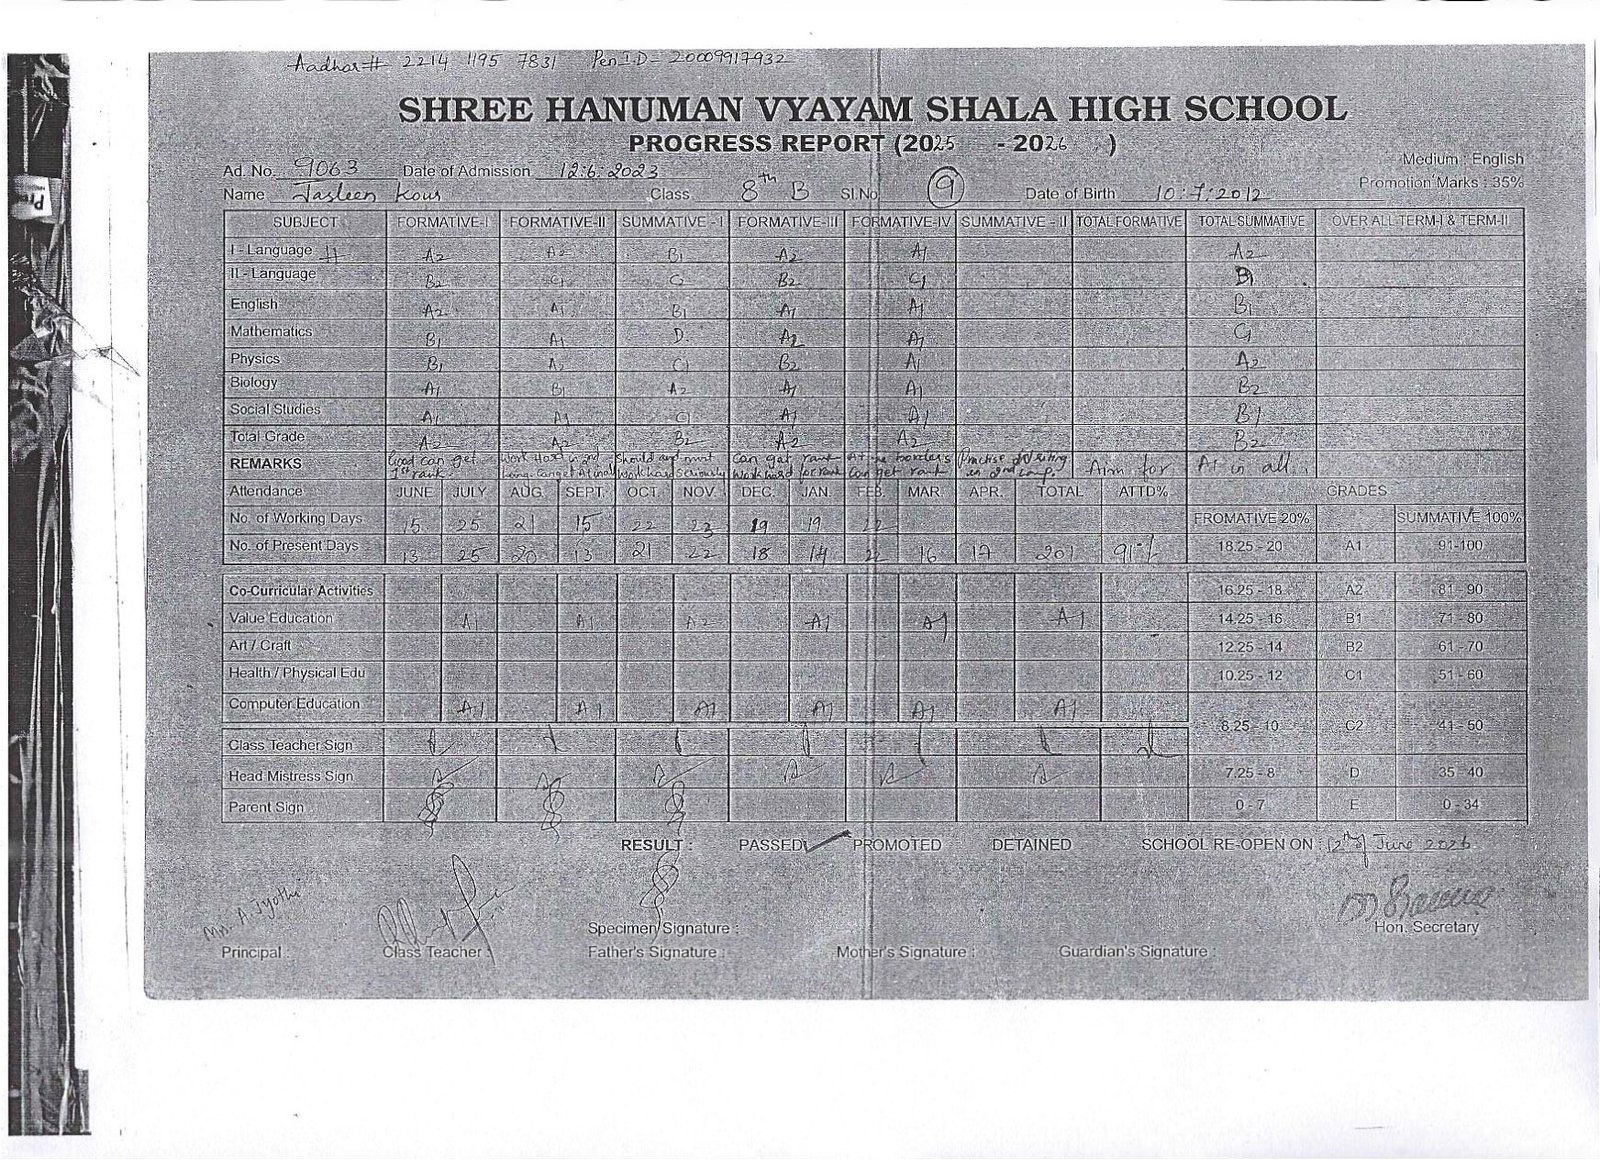 Aadhar# 2214 1195 7831 Pen ID- 20009917932
SHREE HANUMAN VYAYAM SHALA HIGH SCHOOL
PROGRESS REPORT (2025 - 2026 )
Medium : English
Ad. No. 9063 Date of Admission 12.6.2023
Promotion Marks : 35%
Name Jasleen Kour Class 8th B Sl.No 9 Date of Birth 10.7.2012
SUBJECT FORMATIVE-I FORMATIVE-II SUMMATIVE - I FORMATIVE-III FORMATIVE-IV SUMMATIVE - II TOTAL FORMATIVE TOTAL SUMMATIVE OVER ALL TERM-I & TERM-II
I - Language H A2 A2 B1 A2 A1 A2
II - Language B2 C1 C2 B2 C1 B1
English A2 A1 B1 A1 A1 B1
Mathematics B1 A1 D. A2 A1 C1
Physics B1 A2 C1 B2 A1 A2
Biology A1 B1 A2 A1 A1 B2
Social Studies A1 A1 C1 A1 A1 B1
Total Grade A2 A2 B2 A2 A2 B2
REMARKS Good can get 1st rank Work Hard in 2nd lang. can get A1 in all Should and must work hard seriously Can get rank work hard for rank can get rank Practise writing in 2nd lang. Aim for A1 in all.
Attendance JUNE JULY AUG. SEPT. OCT. NOV. DEC. JAN. FEB. MAR. APR. TOTAL ATTD% GRADES
No. of Working Days 15 25 21 15 22 23 19 19 22 FROMATIVE 20% SUMMATIVE 100%
No. of Present Days 13 25 20 13 21 22 18 14 22 16 17 201 91% 18.25 - 20 A1 91-100
Co-Curricular Activities 16.25 - 18 A2 81 - 90
Value Education A1 A1 A2 A1 A1 A1 14.25 - 16 B1 71 - 80
Art / Craft 12.25 - 14 B2 61 - 70
Health / Physical Edu 10.25 - 12 C1 51 - 60
Computer Education A1 A1 A1 A1 A1 A1
8.25 - 10 C2 41 - 50
Class Teacher Sign
Head Mistress Sign 7.25 - 8 D 35 - 40
Parent Sign 0 - 7 E 0 - 34
RESULT : PASSED PROMOTED DETAINED SCHOOL RE-OPEN ON : 12th of June 2026
Mrs. A. Jyothi
Specimen Signature : Hon. Secretary
Principal : Class Teacher : Father's Signature : Mother's Signature : Guardian's Signature :